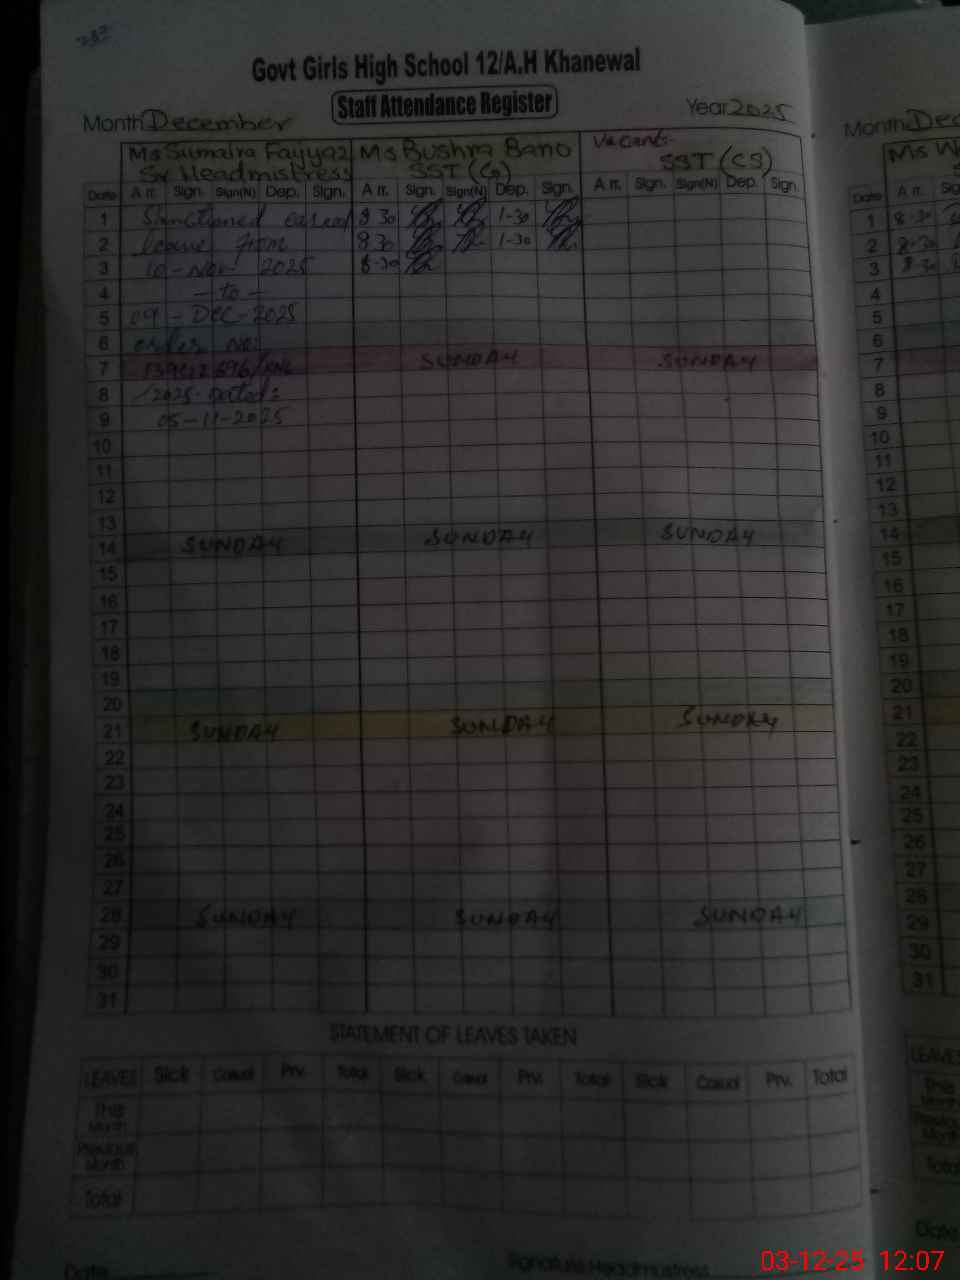 Govt Girls High School 12/A.H Khanewal
Staff Attendance Register
Month December Year 2025
Ms Sumaira Fayyaz Ms Bushra Bano Vacant
Sr Headmistress SST (G) SST (CS)
Date Arr. Sign. Sign(N) Dep. Sign. Arr. Sign. Sign(N) Dep. Sign. Arr. Sign. Sign(N) Dep. Sign.
1 Sanctioned 8 30 1-30
2 leave from 8 30 1-30
3 10-Nov-2025 8-30
4 - to -
5 09-Dec-2025
6 order No:
7 SUNDAY SUNDAY
8 /2025 Dated:
9 05-11-2025
10
11
12
13
14 SUNDAY SUNDAY SUNDAY
15
16
17
18
19
20
21 SUNDAY SUNDAY SUNDAY
22
23
24
25
26
27
28 SUNDAY SUNDAY SUNDAY
29
30
31
STATEMENT OF LEAVES TAKEN
LEAVES Sick Casual Prv. Total Sick Casual Prv. Total Sick Casual Prv. Total
This Month
Previous Month
Total
Date Signature Headmistress
Month Dec
Ms
Date Arr.
1 8-30
2 8-30
3 8-30
4
5
6
7
8
9
10
11
12
13
14
15
16
17
18
19
20
21
22
23
24
25
26
27
28
29
30
31
LEAVES
This Month
Previous Month
Total
Date
03-12-25 12:07